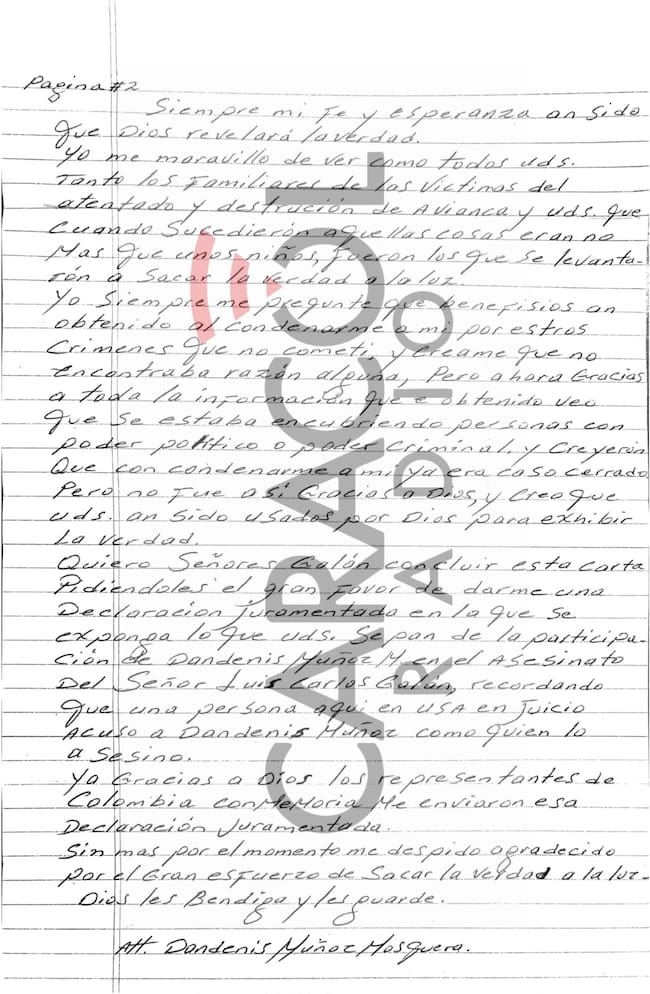 Pagina #2
Siempre mi Fe y esperanza an sido
que Dios revelará la verdad.
Yo me maravillo de ver como todos uds.
Tanto los Familiares de las Victimas del
atentado y destrución de Avianca y uds. que
cuando Sucedierón aquellas cosas eran no
Mas que unos niños, Fueron los que se levanta-
rón a Sacar la verdad a la luz.
Yo Siempre me pregunte que benefisios an
obtenido al condenarme a mi por estros
Crimenes que no cometi, y creame que no
encontraba razón alguna, Pero ahora Gracias
a toda la información que e obtenido veo
que se estaba encubriendo personas con
poder politico o poder criminal, y Creyerón
Que con condenarme a mi ya era caso cerrado
Pero no Fue asi Gracias a Dios, y Creo que
uds. an sido usados por Dios para exhibir
La verdad.
Quiero Señores Galón concluir esta carta
Pidiendoles el gran Favor de darme una
Declaracion Juramentada en la que se
exponga lo que uds. Sepan de la participa-
ción de Dandenis Muñoz M en el Asesinato
Del Señor Luis Carlos Galán, recordando
que una persona aqui en USA en Juicio
Acuso a Dandenis Muñoz como quien lo
asesino.
Ya Gracias a Dios los representantes de
Colombia conMeMoria Me enviaron esa
Declaración Juramentada.
Sin mas por el momento me despido agradecido
por el Gran esfuerzo de Sacar la verdad a la luz-
Dios les Bendiga y les guarde.
Att. Dandenis Muñoz Mosquera.
CARACOL
RADIO